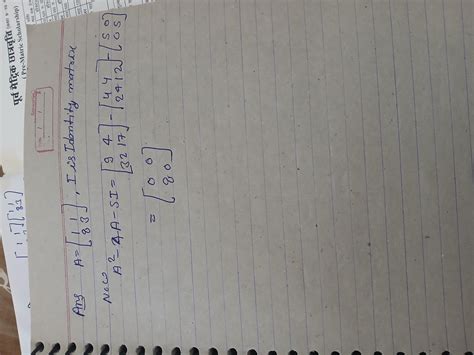 पूर्व मैट्रिक छात्रवृत्ति
( Pre-Matric Scholarship)
Ans A = [1 1
8 3] , I is Identity matrix
Now
A² - 4A - 5I = [9 4
32 17] - [4 4
24 12] - [5 0
0 5]
= [0 0
8 0]